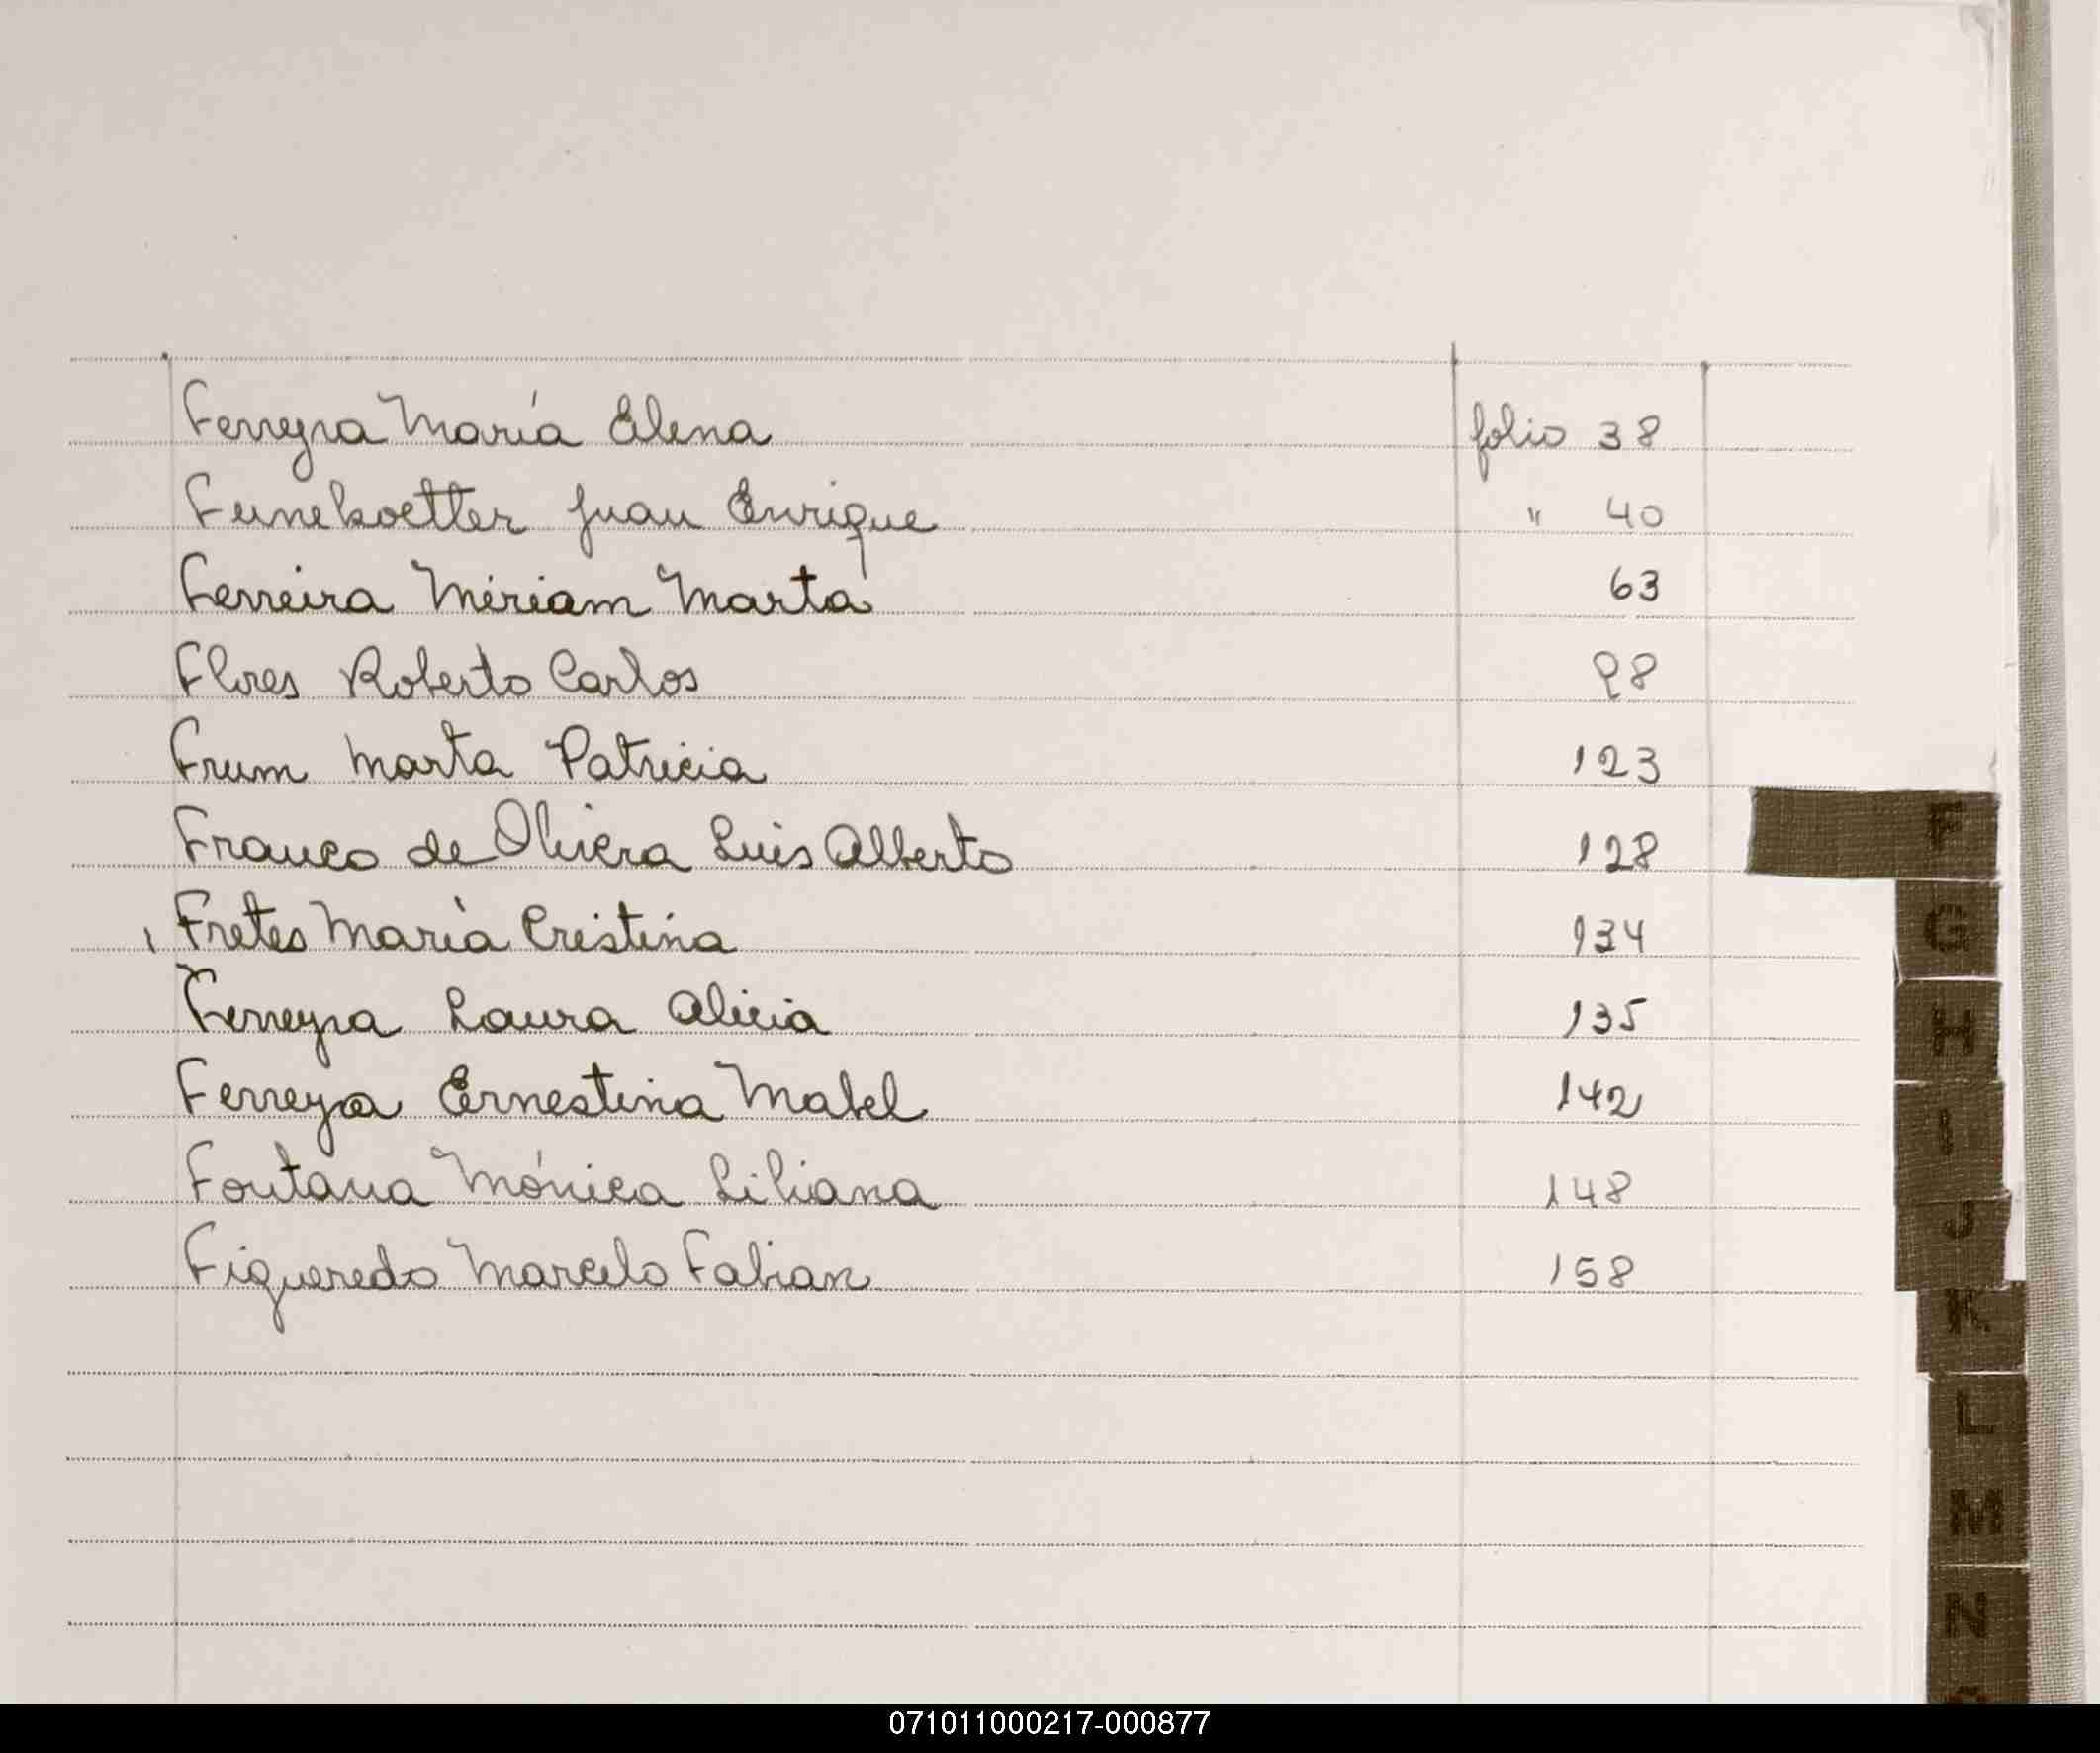 Ferreyra María Elena folio 38
Feunekoetter Juan Enrique " 40
Ferreira Miriam Marta 63
Flores Roberto Carlos 98
Frum Marta Patricia 123
Franco de Olivera Luis Alberto 128
Fretes María Cristina 134
Ferreyra Laura Alicia 135
Ferreyra Ernestina Mabel 142
Fontana Mónica Liliana 148
Figueredo Marcelo Fabian 158
F
G
H
I
J
K
L
M
N
071011000217-000877